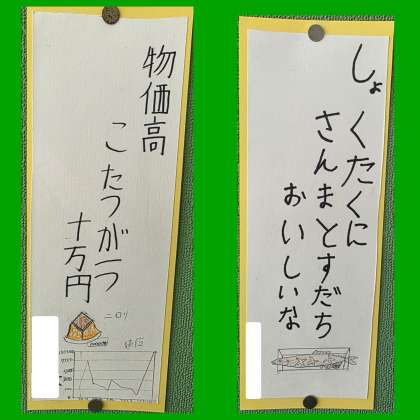 物価高
こたつがラ
十万円
ニロリ
しょくたくに
さんまとすだち
おいしいな